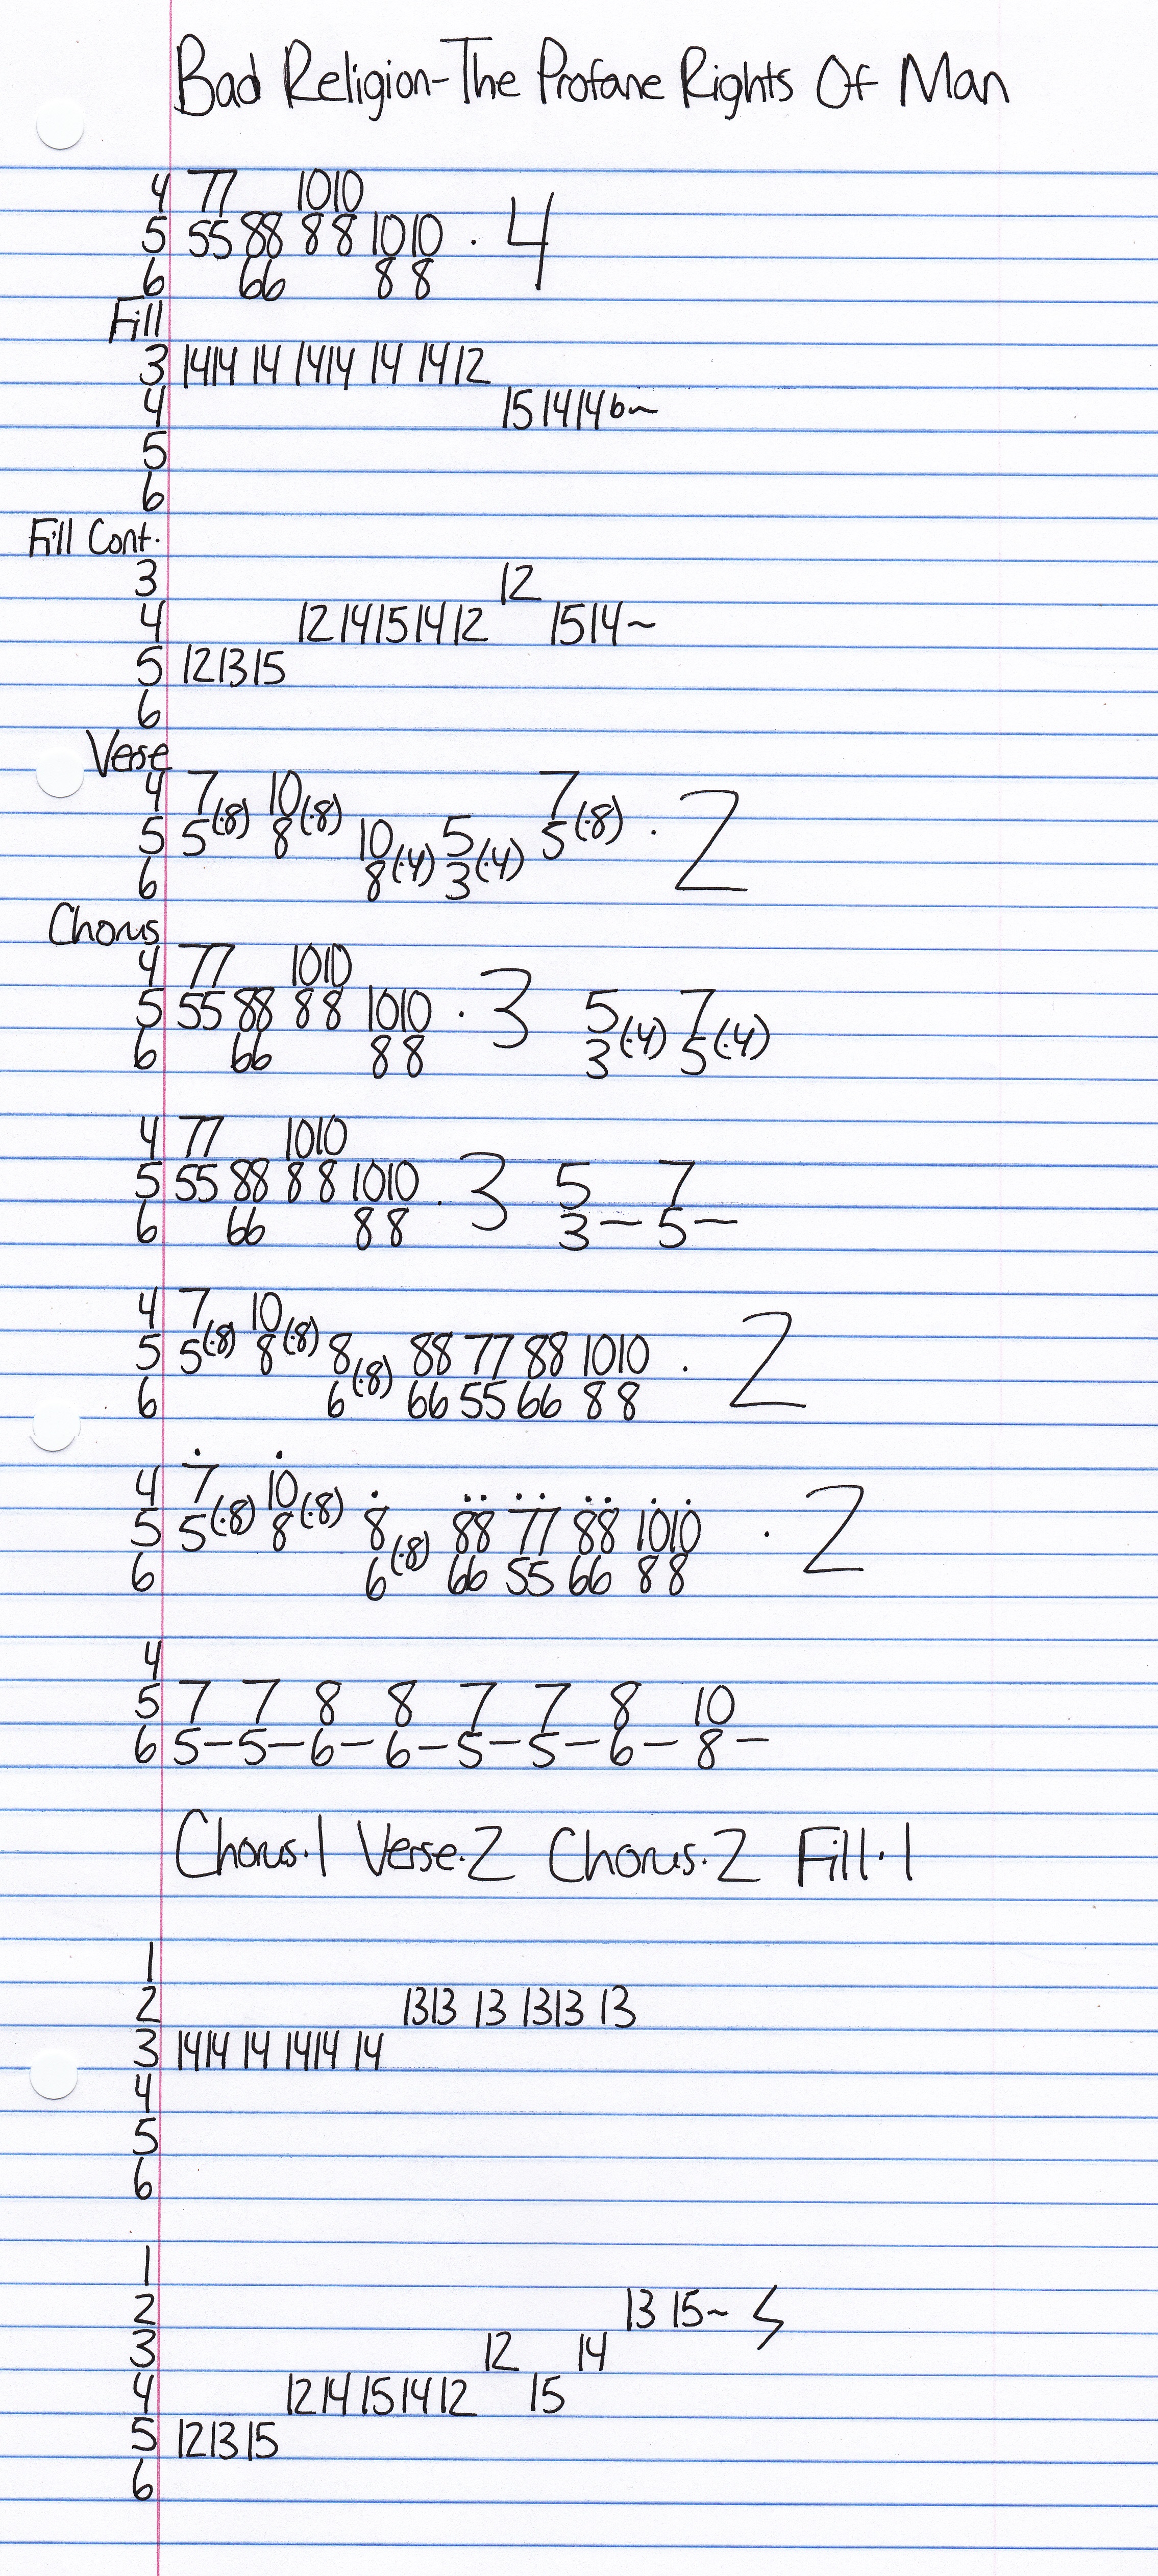 Bad Religion-The Profane Rights Of Man
4 77 1010
5 55 88 8 8 1010 · 4
6 66 8 8
Fill
3 1414 14 1414 14 1412
4 15 1414b~
5
6
Fill Cont.
3 12
4 12 1415 1412 1514~
5 121315
6
Verse
4 7 10 7
5 5(·8) 8(·8) 10 5 5(·8) · 2
6 8(·4) 3(·4)
Chorus
4 77 1010
5 55 88 8 8 1010 · 3 5 7
6 66 8 8 3(·4) 5(·4)
4 77 1010
5 55 88 8 8 1010 · 3 5 7
6 66 8 8 3— 5—
4 7 10
5 5(·8) 8(·8) 8 88 77 88 1010 · 2
6 6(·8) 66 55 66 8 8
4 7 10
5 5(·8) 8(·8) 8 88 77 88 1010 · 2
6 6(·8) 66 55 66 8 8
4
5 7 7 8 8 7 7 8 10
6 5—5—6—6—5—5—6—8—
Chorus·1 Verse·2 Chorus·2 Fill·1
1
2 1313 13 1313 13
3 1414 14 1414 14
4
5
6
1
2 13 15~
3 12 14
4 1214151412 15
5 121315
6